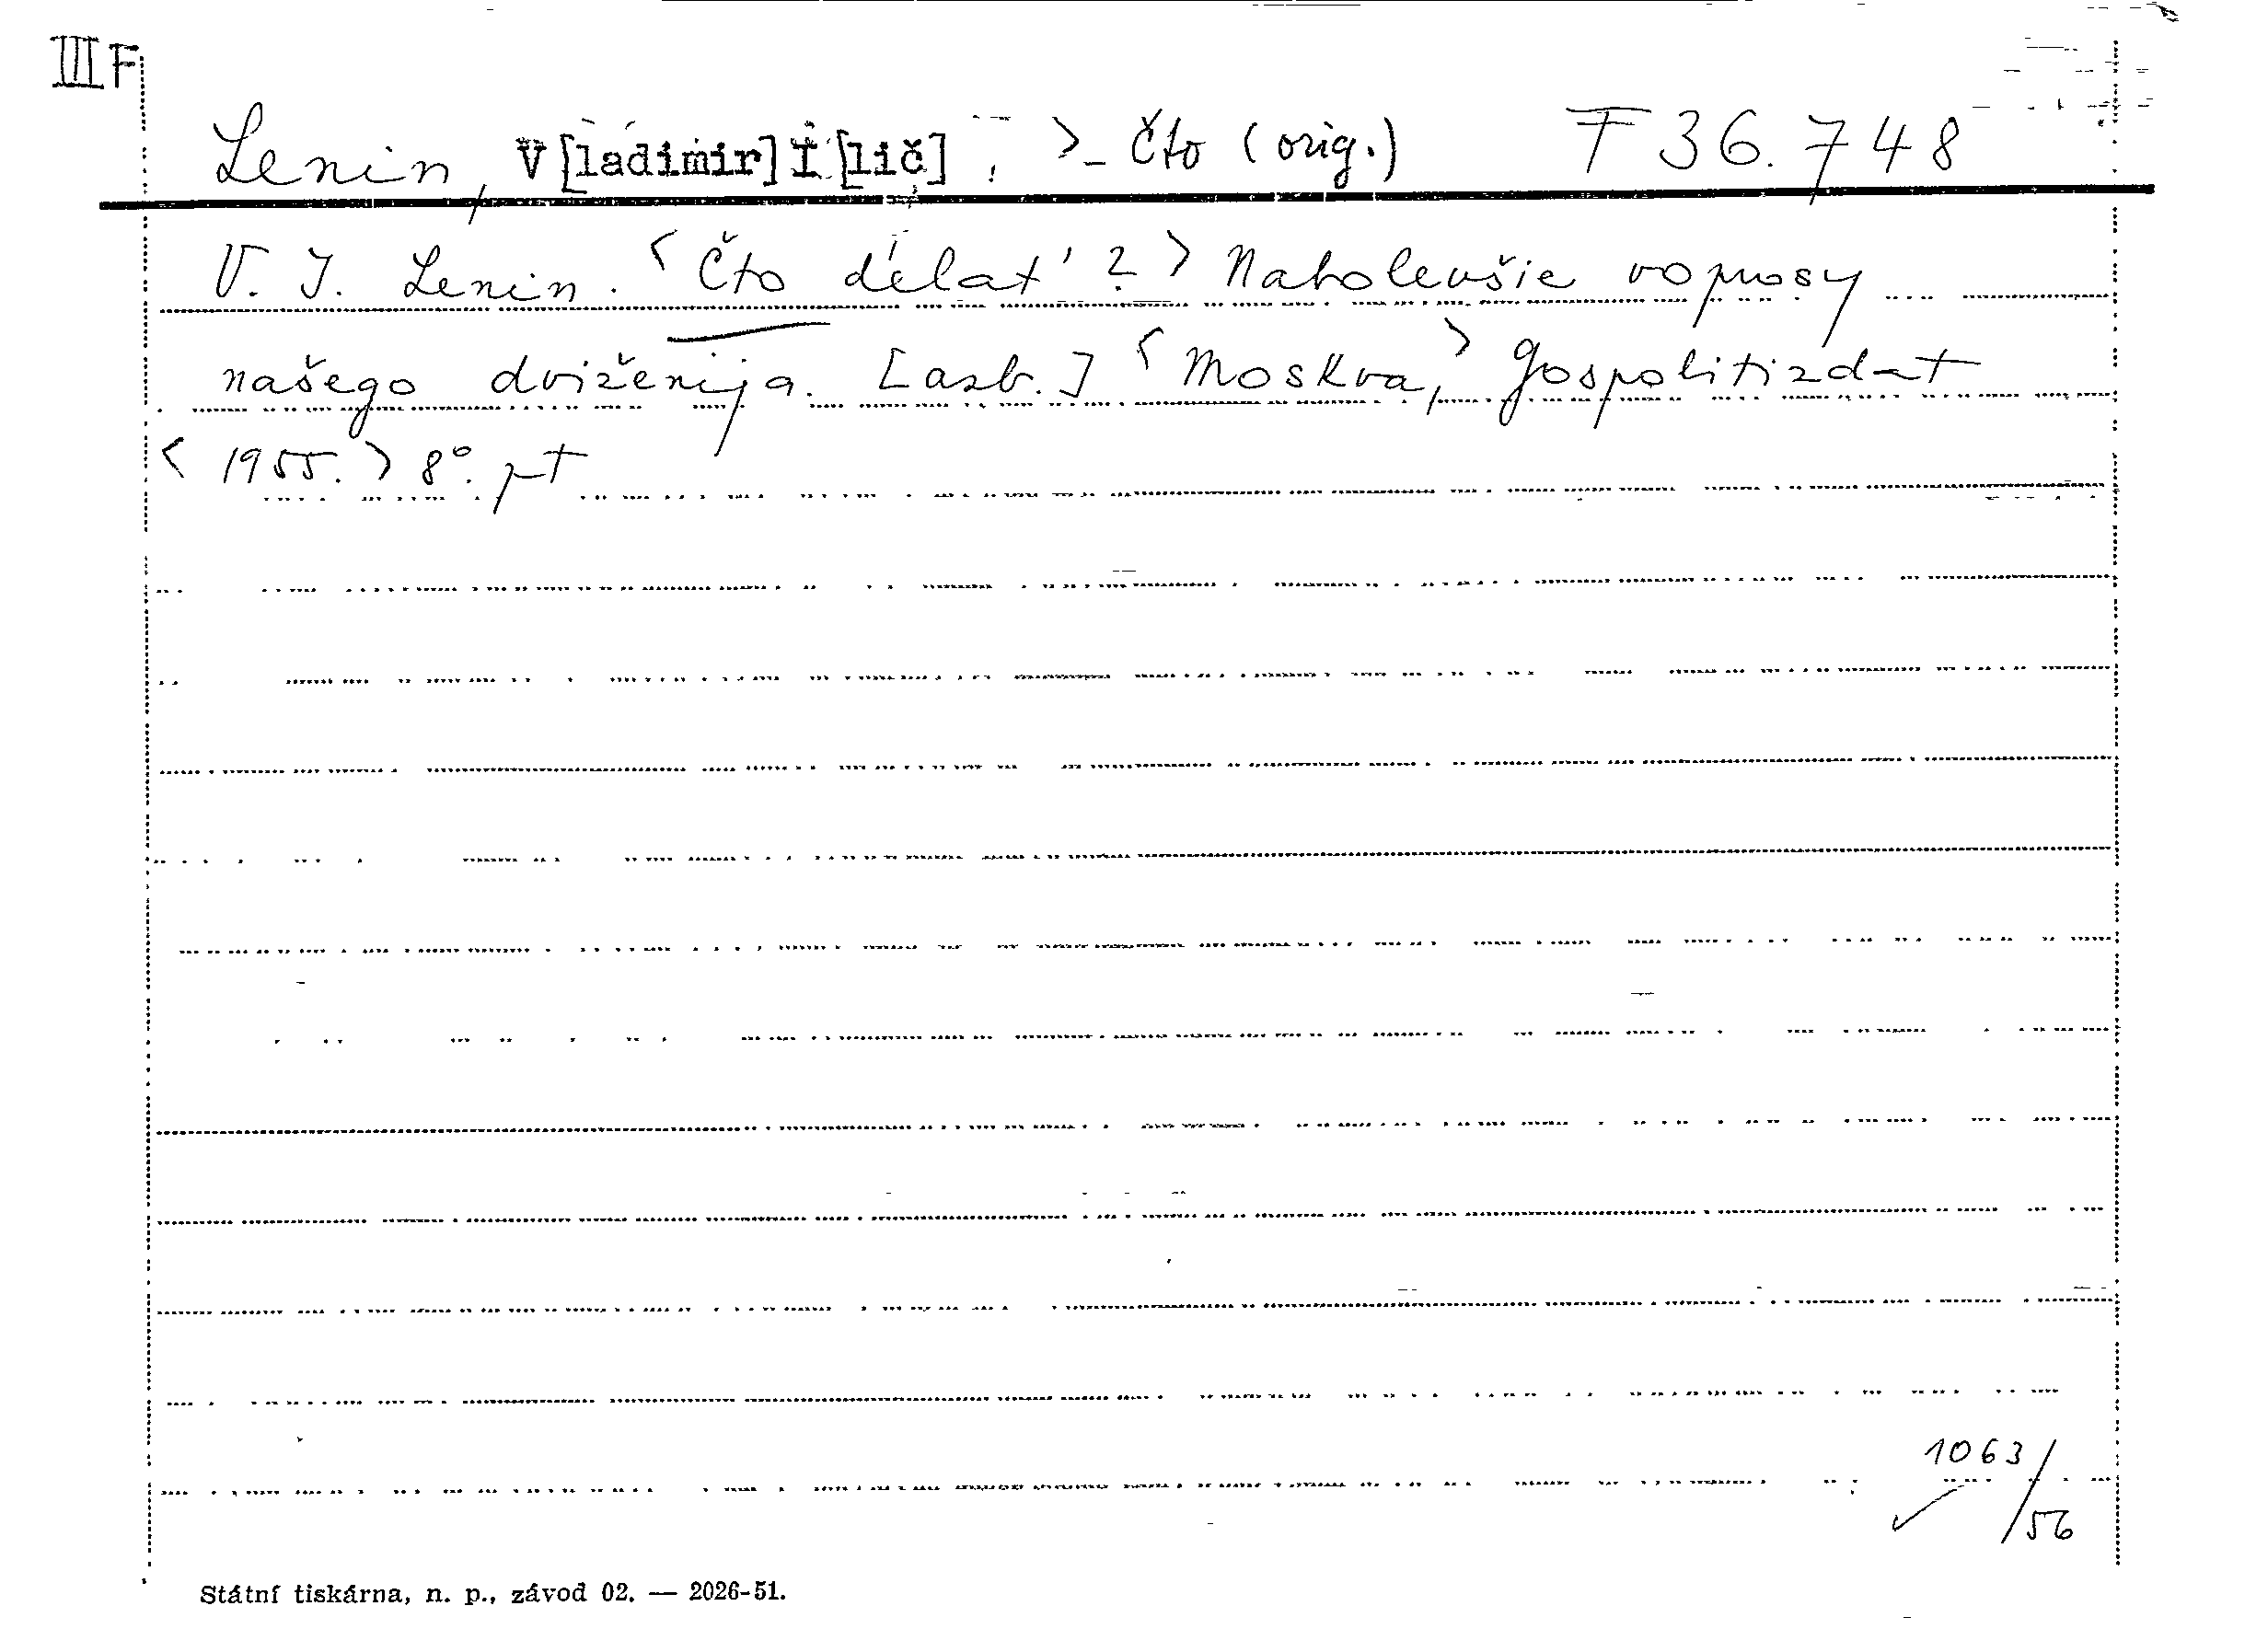 III F
Lenin, V[ladimir] I[lič] , >- Čto (orig.) F 36.748
V. I. Lenin. <Čto dělat'?> Nabolevšie voprosy
našego dviženija. [azb.] <Moskva,> Gospolitizdat
<1955.> 8°. pt
1063/
/56
Státní tiskárna, n. p., závod 02. — 2026-51.